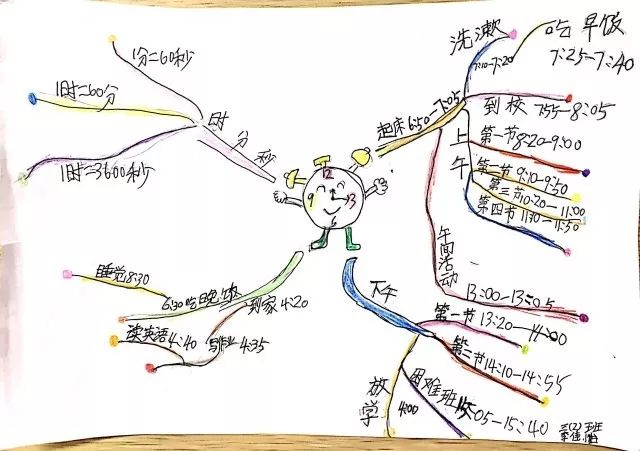 1分=60秒
1时=60分
1时=3600秒
时
分
秒
12
9
3
6
起床6:50-7:05
洗漱
7:10-7:20
吃早饭
7:25-7:40
到校 7:55-8:05
上午
第一节8:20-9:00
第二节9:10-9:50
第三节10:20-11:00
第四节11:10-11:50
午间活动
13:00-13:05
下午
第一节13:20-14:00
第二节14:10-14:55
困难班15:05-15:40
放学
4:00
到家4:20
写作业4:35
读英语4:40
6:30吃晚饭
睡觉8:30
三(2)班